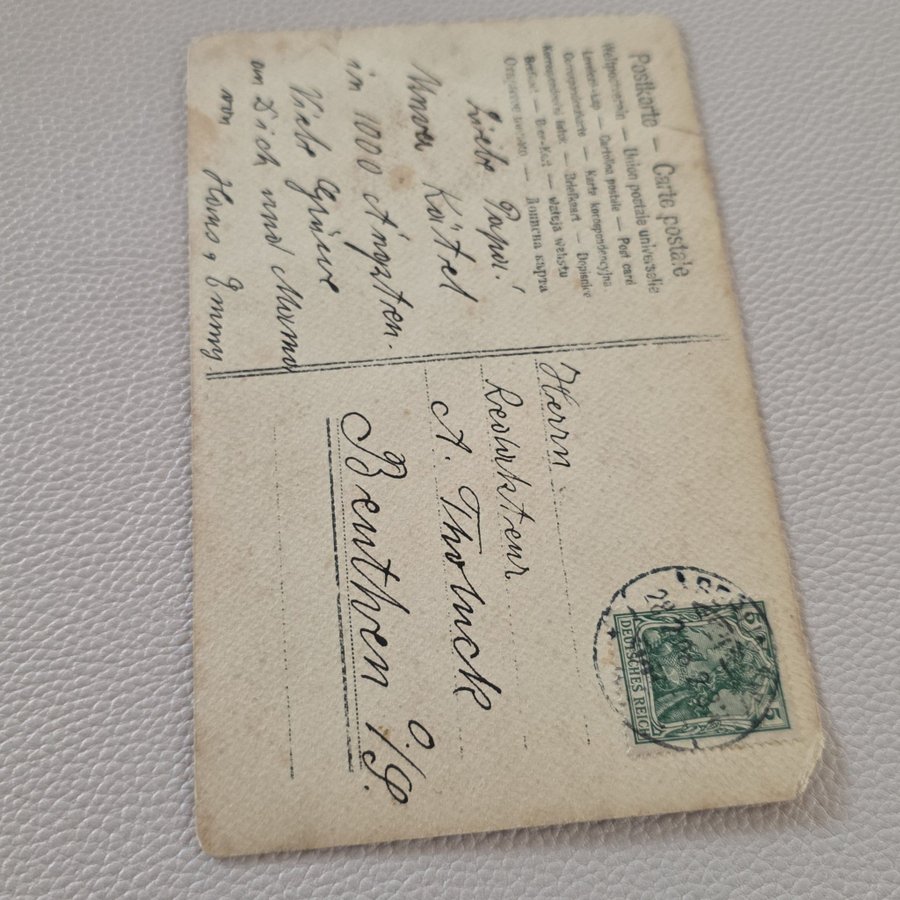 Postkarte — Carte postale
Weltpostverein — Union postale universelle
Levelez-Lap — Cartolina postale — Post card
Correspondenzkarte — Karta korespondencyjna
Korespondenční lístek — Briefkaart — Dopisnice
Brefkort — Brev-Kort —
Открытое письмо — Дописна карта
Liebe Papa!
Unser Kartel
in 1000 Ängsten.
Viele Grüsse
an Dich und Mama
von Hans & Emmy.
Herrn
Redakteur
A. Tholuck
Beuthen O/S.
DEUTSCHES REICH
5 5
28